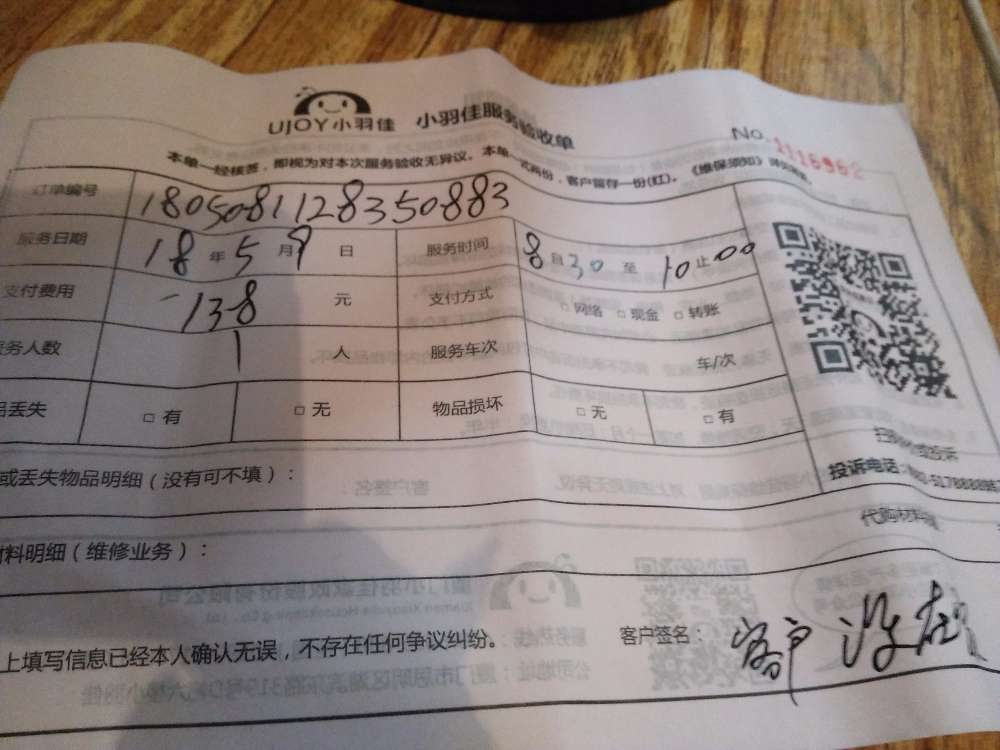 UJOY小羽佳 小羽佳服务验收单
No. 1116962
本单一经核签，即视为对本次服务验收无异议。本单一式两份，客户留存一份(红)。《维保须知》
订单编号 1805081128350883
服务日期 18 年 5 月 9 日 服务时间 8 自 30 至 10 止 00
支付费用 138 元 支付方式 □ 网络 □ 现金 □ 转账
服务人数 1 人 服务车次 车/次
丢失 □ 有 □ 无 物品损坏 □ 无 □ 有
投诉电话：
或丢失物品明细（没有可不填）：
代购材料
材料明细（维修业务）：
上填写信息已经本人确认无误，不存在任何争议纠纷。 客户签名： 客户 没在